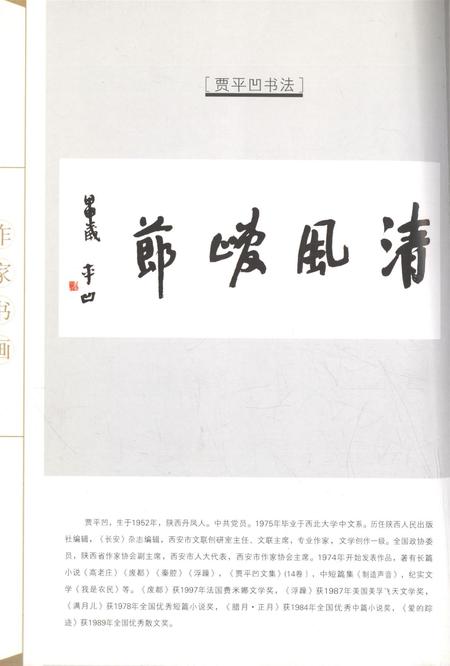 [贾平凹书法]
清风峻节
甲戌
平凹
作家书画
贾平凹，生于1952年，陕西丹凤人。中共党员。1975年毕业于西北大学中文系。历任陕西人民出版
社编辑，《长安》杂志编辑，西安市文联创研室主任、文联主席，专业作家，文学创作一级。全国政协委
员，陕西省作家协会副主席，西安市人大代表，西安市作家协会主席。1974年开始发表作品，著有长篇
小说《高老庄》《废都》《秦腔》《浮躁》，《贾平凹文集》(14卷)，中短篇集《制造声音》，纪实文
学《我是农民》等。《废都》获1997年法国费米娜文学奖，《浮躁》获1987年美国美孚飞天文学奖，
《满月儿》获1978年全国优秀短篇小说奖，《腊月·正月》获1984年全国优秀中篇小说奖，《爱的踪
迹》获1989年全国优秀散文奖。